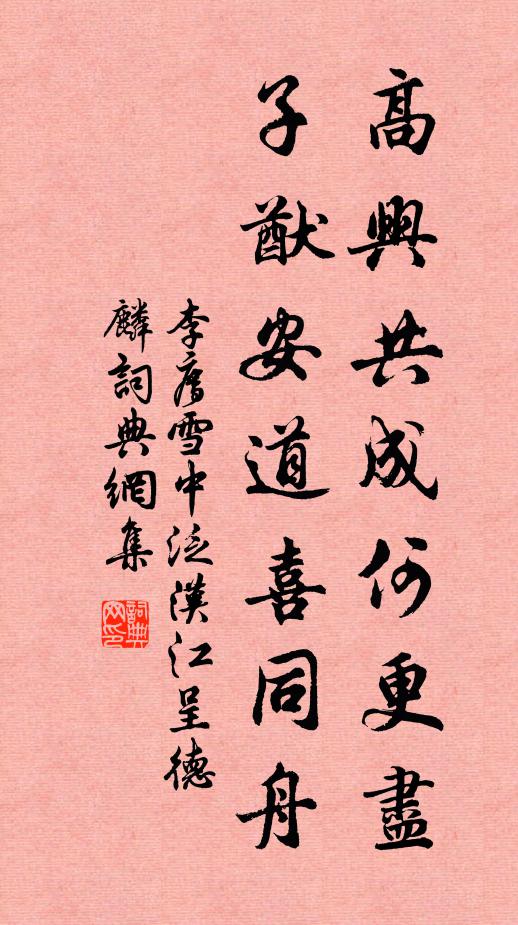 高興共成何更盡
子猷安道喜同舟
李廌雪中泛漢江呈德
麟詞典網集
詞典
网印